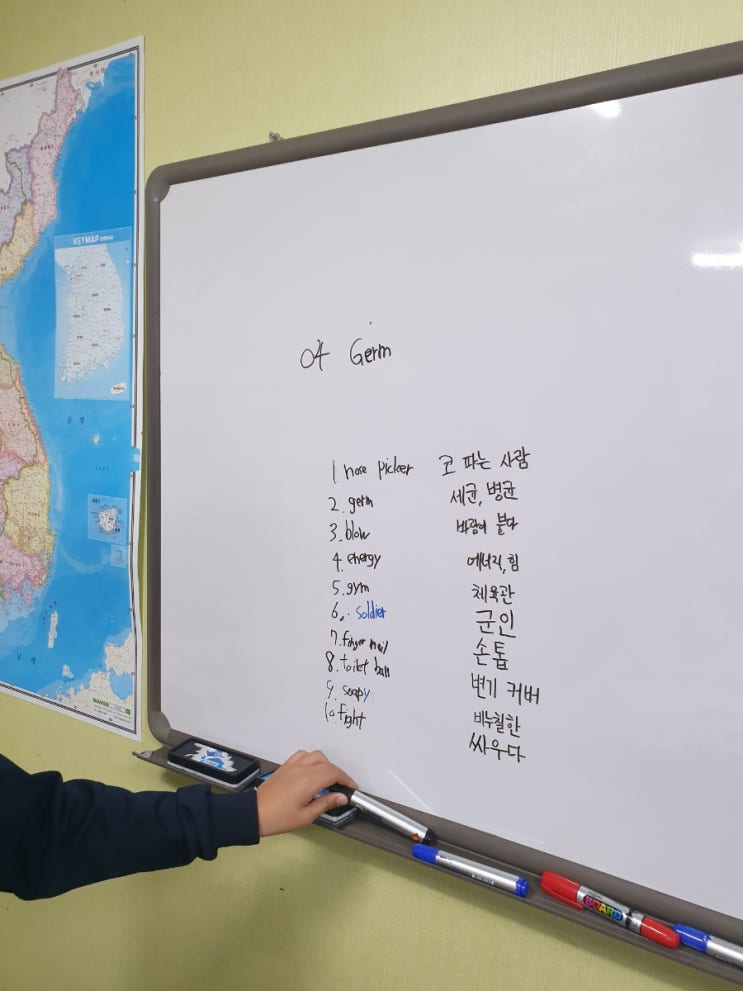 KEYMAP
04 Germ
1. nose picker 코 파는 사람
2. germ 세균, 병균
3. blow 바람이 불다
4. energy 에너지, 힘
5. gym 체육관
6. soldier 군인
7. finger nail 손톱
8. toilet ball 변기 커버
9. soapy 비누칠한
10. fight 싸우다
BOARD